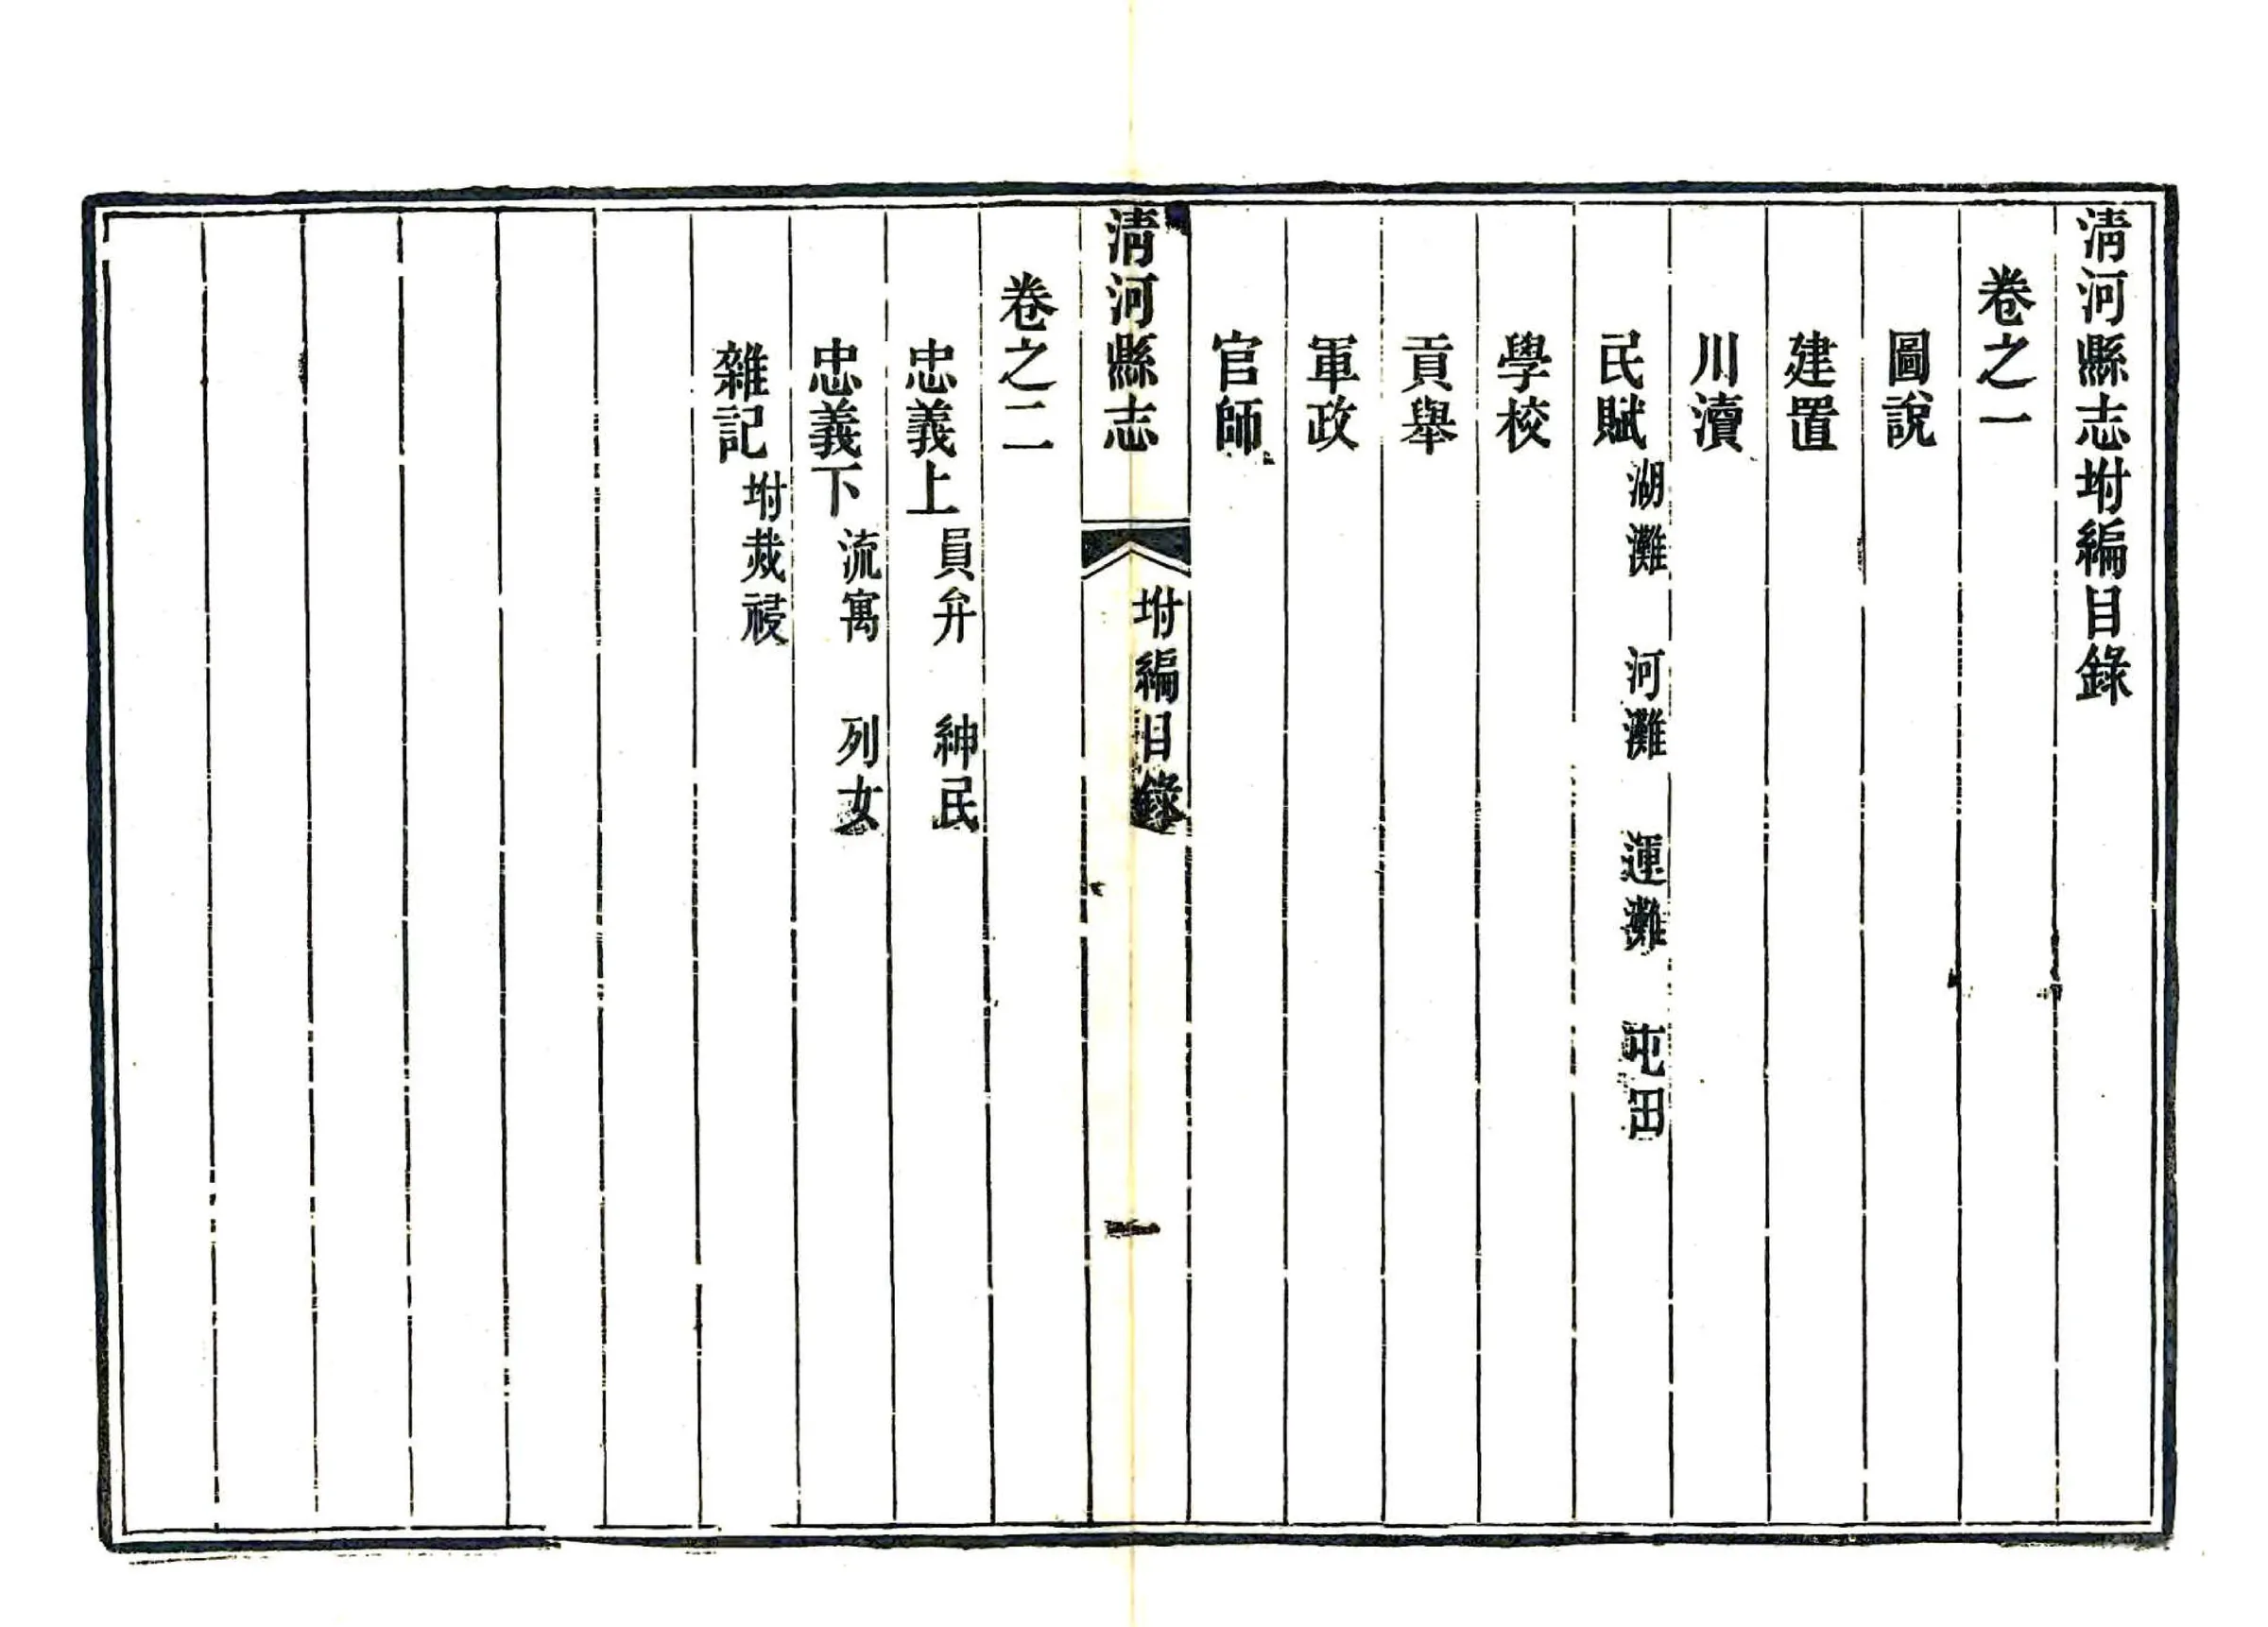 淸河縣志坿編目錄
卷之一
圖說
建置
川瀆
民賦 湖灘 河灘 運灘 屯田
學校
貢舉
軍政
官師
淸河縣志 坿編目錄 一
卷之二
忠義上 員弁 紳民
忠義下 流寓 列女
雜記 坿烖祲